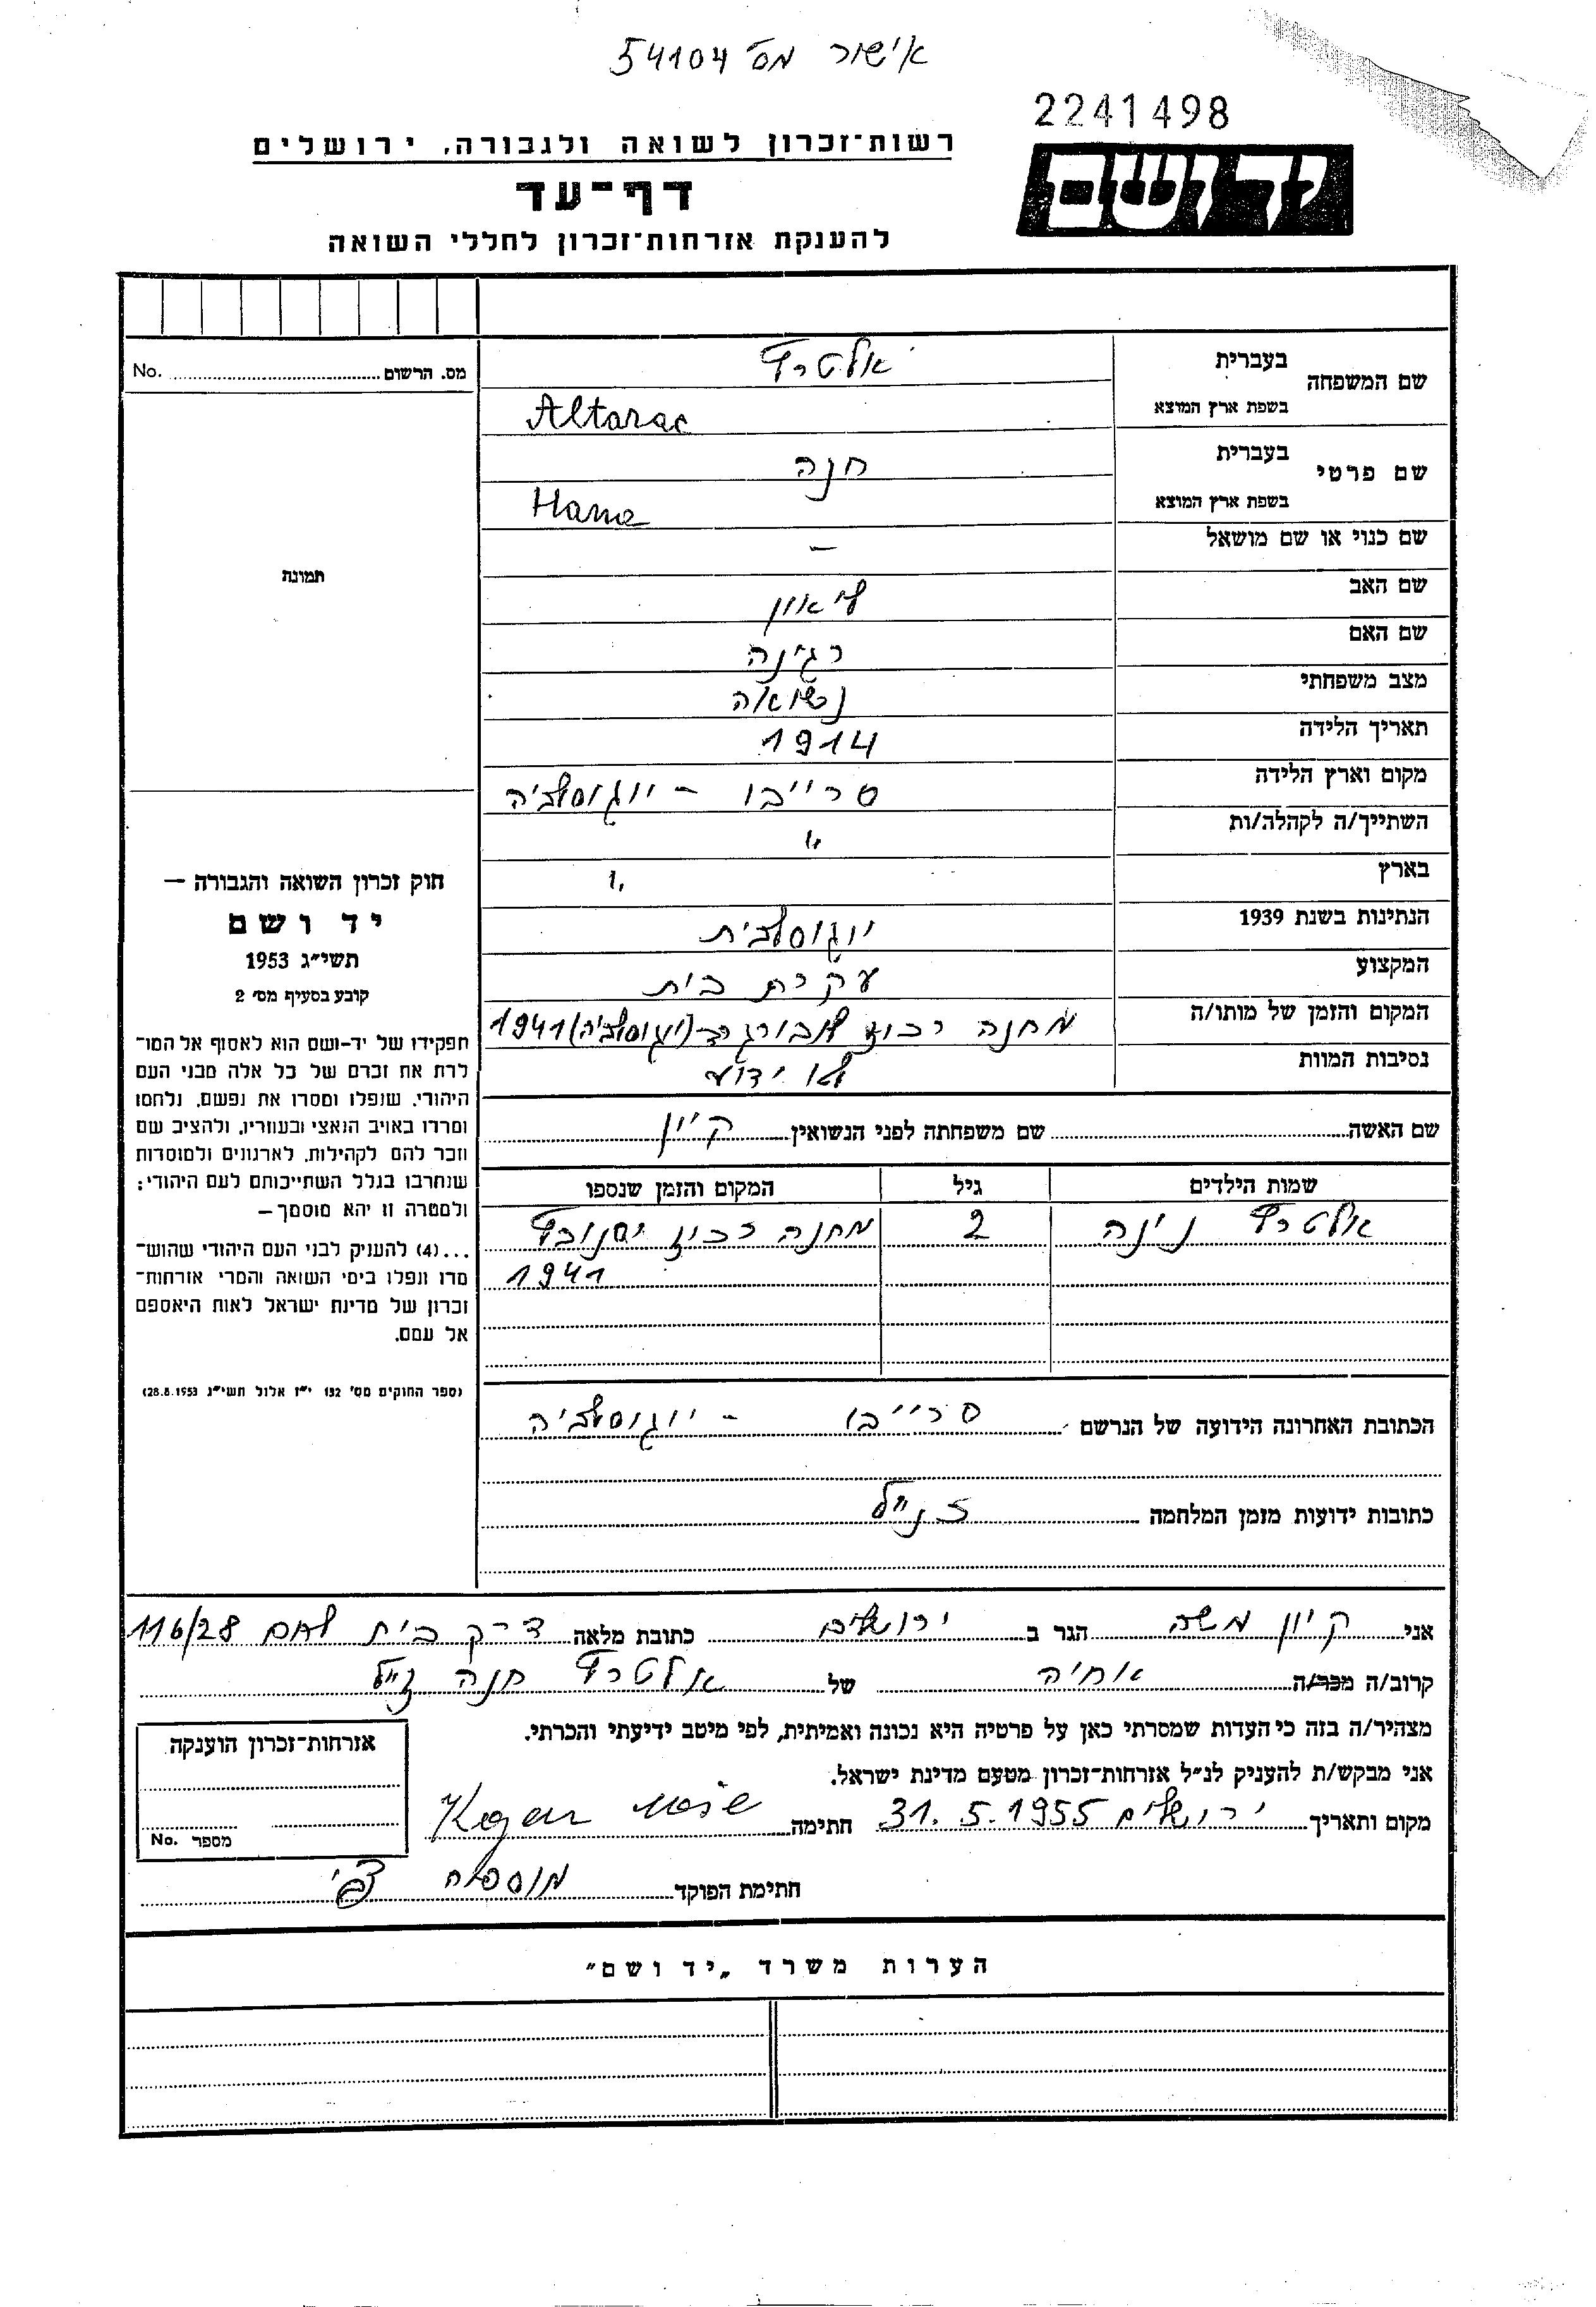 אישור מס' 54104
2241498
רשות־זכרון לשואה ולגבורה, ירושלים
יד ושם
דף־עד
להענקת אזרחות־זכרון לחללי השואה
מס. הרשום No.
שם המשפחה בעברית אלטרץ
בשפת ארץ המוצא Altarac
שם פרטי בעברית חנה
בשפת ארץ המוצא Hana
שם כנוי או שם מושאל –
תמונה
שם האב ליאון
שם האם רגינה
מצב משפחתי נשואה
תאריך הלידה 1914
מקום וארץ הלידה סרייבו - יוגוסלביה
השתייך/ה לקהלה/ות "
בארץ "
הנתינות בשנת 1939 יוגוסלבית
המקצוע עקרת בית
המקום והזמן של מותו/ה מחנה רכוז לובורגרד (יוגוסלביה) 1941
נסיבות המוות לא ידוע
חוק זכרון השואה והגבורה —
יד ושם
תשי״ג 1953
קובע בסעיף מס׳ 2
תפקידו של יד-ושם הוא לאסוף אל המו־
לדת את זכרם של כל אלה מבני העם
היהודי, שנפלו ומסרו את נפשם, נלחמו
ומרדו באויב הנאצי ובעוזריו, ולהציב שם
וזכר להם לקהילות, לארגונים ולמוסדות
שנחרבו בגלל השתייכותם לעם היהודי:
ולמטרה זו יהא מוסמך—
...(4) להעניק לבני העם היהודי שהוש־
מדו ונפלו בימי השואה והמרי אזרחות־
זכרון של מדינת ישראל לאות היאספם
אל עמם.
(ספר החוקים מס׳ 132 י״ז אלול תשי״ג 28.8.1953)
שם האשה שם משפחתה לפני הנשואין קיון
שמות הילדים גיל המקום והזמן שנספו
אלטרץ נינה 2 מחנה רכוז יסנובץ
1941
הכתובת האחרונה הידועה של הנרשם סרייבו - יוגוסלביה
כתובות ידועות מזמן המלחמה כנ"ל
אני קיון משה הגר ב ירושלים כתובת מלאה דרך בית לחם 116/28
קרוב/ה מכר/ה אחיה של אלטרץ חנה ז"ל
מצהיר/ה בזה כי העדות שמסרתי כאן על פרטיה היא נכונה ואמיתית, לפי מיטב ידיעתי והכרתי.
אני מבקש/ת להעניק לנ״ל אזרחות־זכרון מטעם מדינת ישראל.
מקום ותאריך ירושלים 31.5.1955 חתימה
חתימת הפוקד
אזרחות־זכרון הוענקה
מספר No.
הערות משרד „יד ושם״